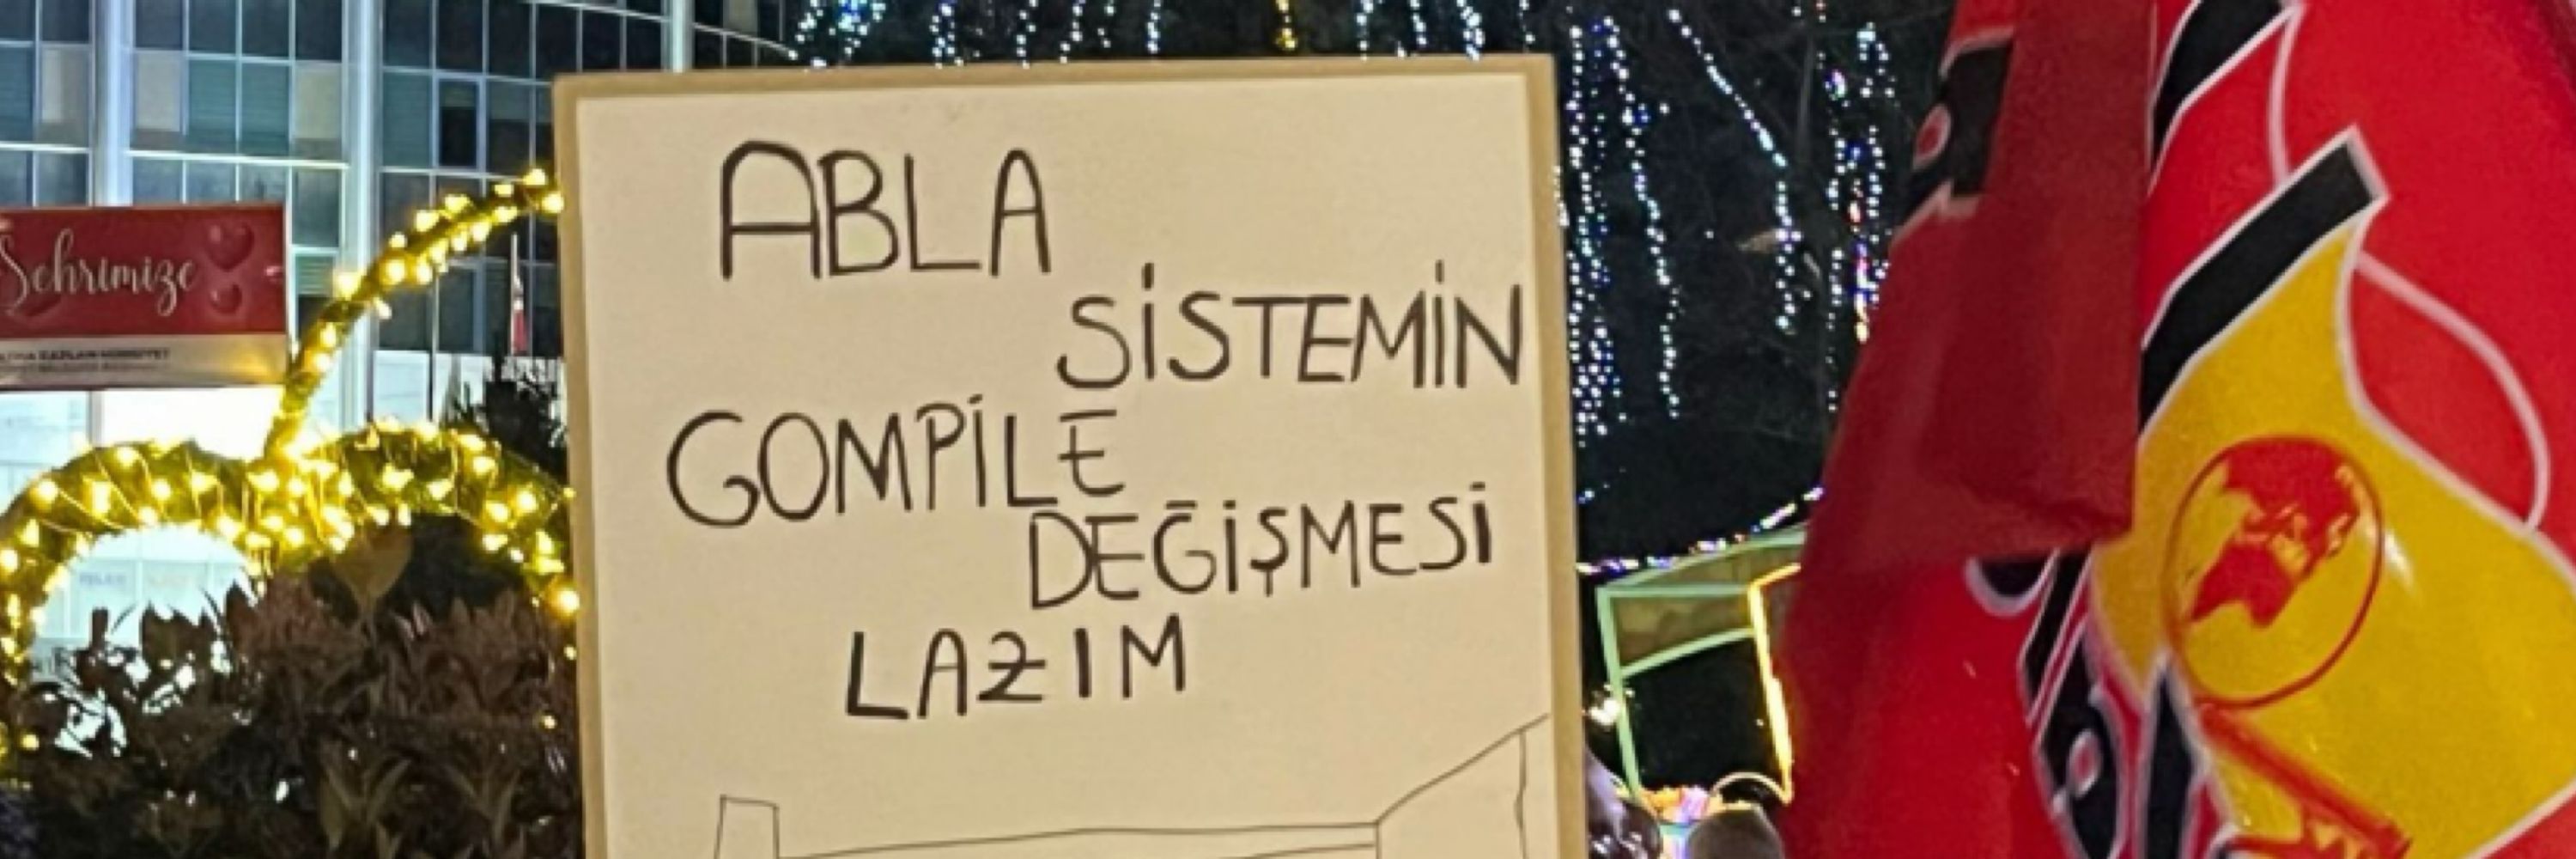 Şehrimize
ABLA
SİSTEMİN
GOMPİLE
DEĞİŞMESİ
LAZIM